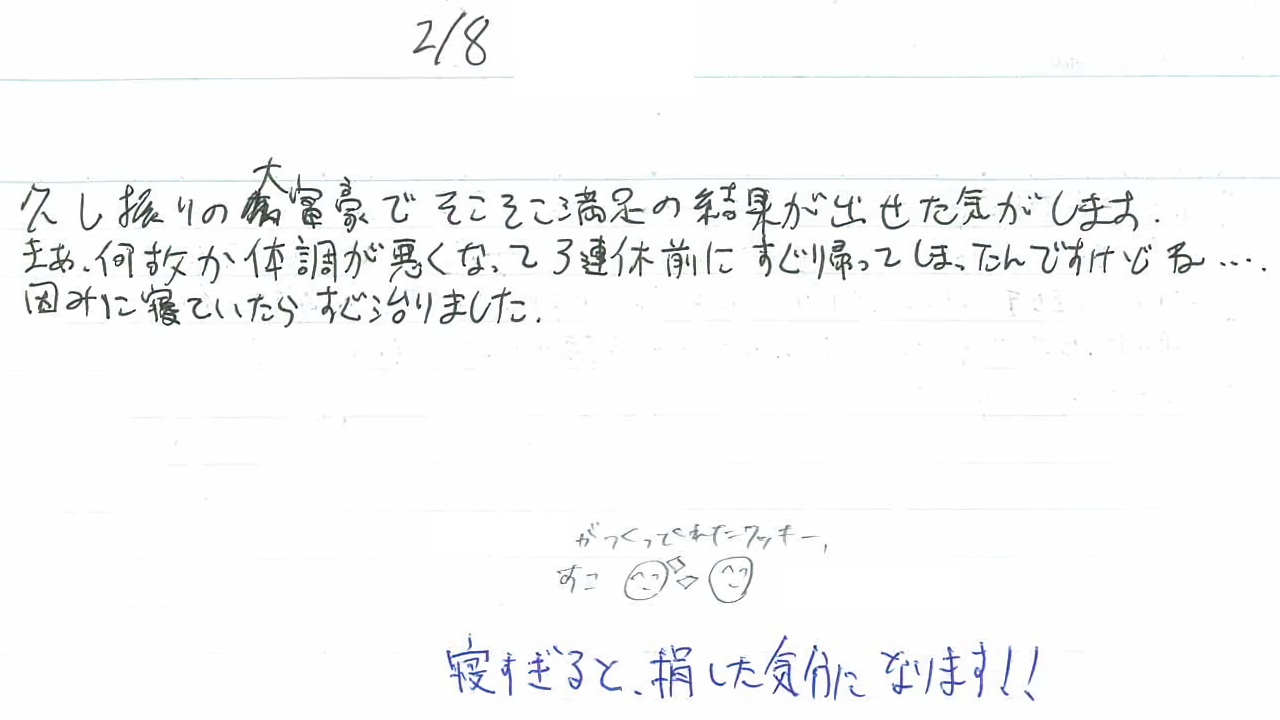 2/8
久し振りの大富豪でそこそこ満足の結果が出せた気がします.
まあ、何故か体調が悪くなって3連休前にすぐり帰ってしまったんですけどね….
因みに寝ていたらすぐ治りました.
がつくってくれたクッキー,
すこ
寝すぎると、損した気分になります!!